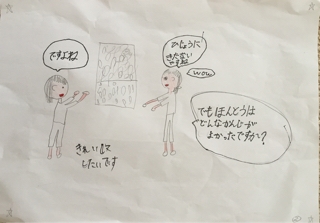 ですよね
ひじょうに
きたない
ですね
wow
でもほんとうは
どんなかんじが
よかったですか?
きれいにして
したいです